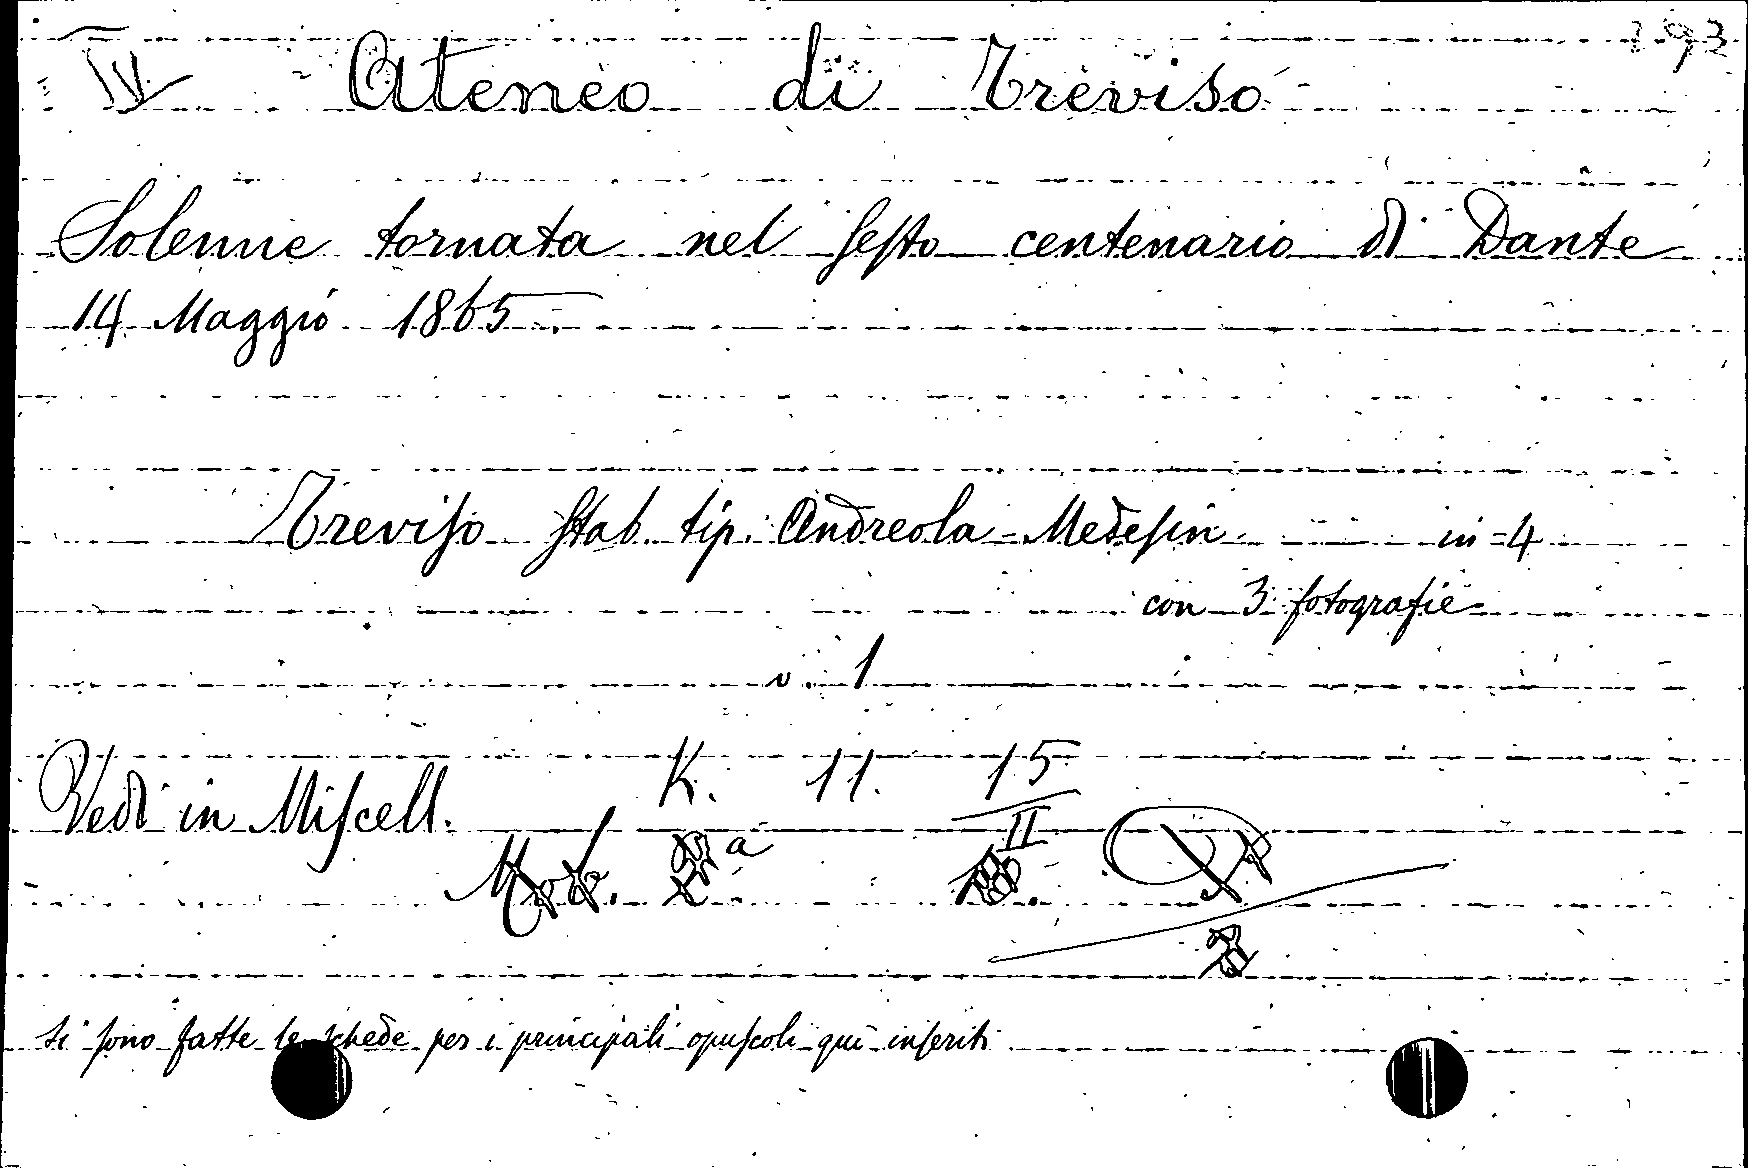 IV Ateneo di Treviso
Solenne tornata nel sesto centenario di Dante
14 Maggio 1865.
Treviso Stab. tip. Andreola-Medesin in-4
con 3 fotografie
v. 1
K. 11. 15
II
Vedi in Miscell.
Si sono fatte le schede per i principali opuscoli qui inseriti